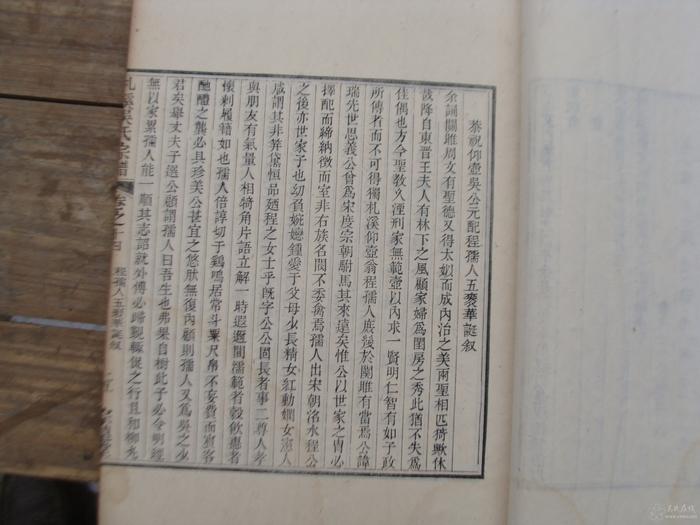 恭祝仰壺吳公元配程孺人五褒華誕叙
余誦關雎周文有聖德又得太姒而成內治之美兩聖相匹猗歟休
哉降自東晋王夫人有林下之風顧家婦爲閨房之秀此猶不失爲
佳偶也方今聖敎久湮刑家無範壺以內求一賢明仁智有如子政
所傳者而不可得獨札溪仰壺翁程孺人庶幾於關雎有當焉公諱
瑞先世思義公曾爲宋度宗朝駙馬其來遠矣惟公以世家之冑必
擇配而締納徵而室非右族名閥不委禽焉孺人出宋朝洛水程公
之後亦世家子也幼貞婉嫕鍾愛于父母少長精女紅動嫻女憲人
咸謂其非笄黛恒品廼程之女士乎旣字公公固長者事二尊人孝
與朋友有氣量人相犄角片語立解一時遐邇間濡範者穀飲惠者
懷刺屨籍如也孺人倍諄切于鷄鳴居常斗粟尺帛不妄費而賓客
酏醴之襲必具珍美公甚宜之悠肰無復內顧則孺人又爲吳之少
君矣舉丈夫子
選公顧謂孺人曰吾生也弗果自樹此子必令明經
無以家累孺人能一順其志詔就外傅必
之行且和柳丸
氏宗譜
卷之十四
程孺人五褒華誕叙